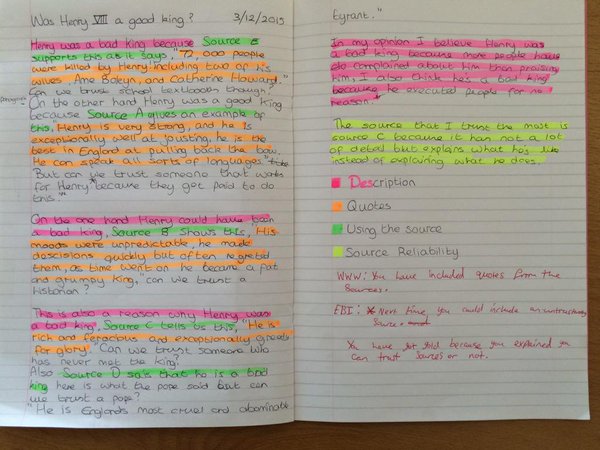 Was Henry VIII a good king? 3/12/2015
Henry was a bad king because Source E
supports this as it says, "72,000 people
were killed by Henry including two of his
wives Ame Boleyn, and Catherine Howard."
Can we trust school textbooks though?
On the other hand Henry was a good king
because Source A gives an example of
this, "Henry is very strong, and he is
exceptionally well at jousting, he is the
best in England at pulling back the bow.
He can speak all sorts of languages."
But can we trust someone that works
for Henry because they get paid to do
this."
On the one hand Henry could have been
a bad king, Source B shows this, "His
moods were unpredictable, he made
descisions quickly but often regreted
them, as time went on he became a fat
and grumpy king," can we trust a
historian?
This is also a reason why Henry was
a bad king, Source C tells us this, "He is
rich and ferocious and exceptionally greedy
for glory." Can we trust someone who
has never met the king?
Also Source D sais that he is a bad
king here is what the pope said but can
we trust a pope?
"He is Englands most cruel and abominable
tyrant."
In my opinion I believe Henry was
a bad king because more people have
do complained about him then praising
him, I also think he's a bad king
because he executed people for no
reason.
The source that I trust the most is
source C because it has not a lot
of detail but explains what he's like
instead of explaining what he does.
Description
Quotes
Using the source
Source Reliability
WWW: You have included quotes from the
Sources.
EBI: Next time you could include an untrustworthy
Source.
You have got Gold because you explained you
can trust Sources or not.